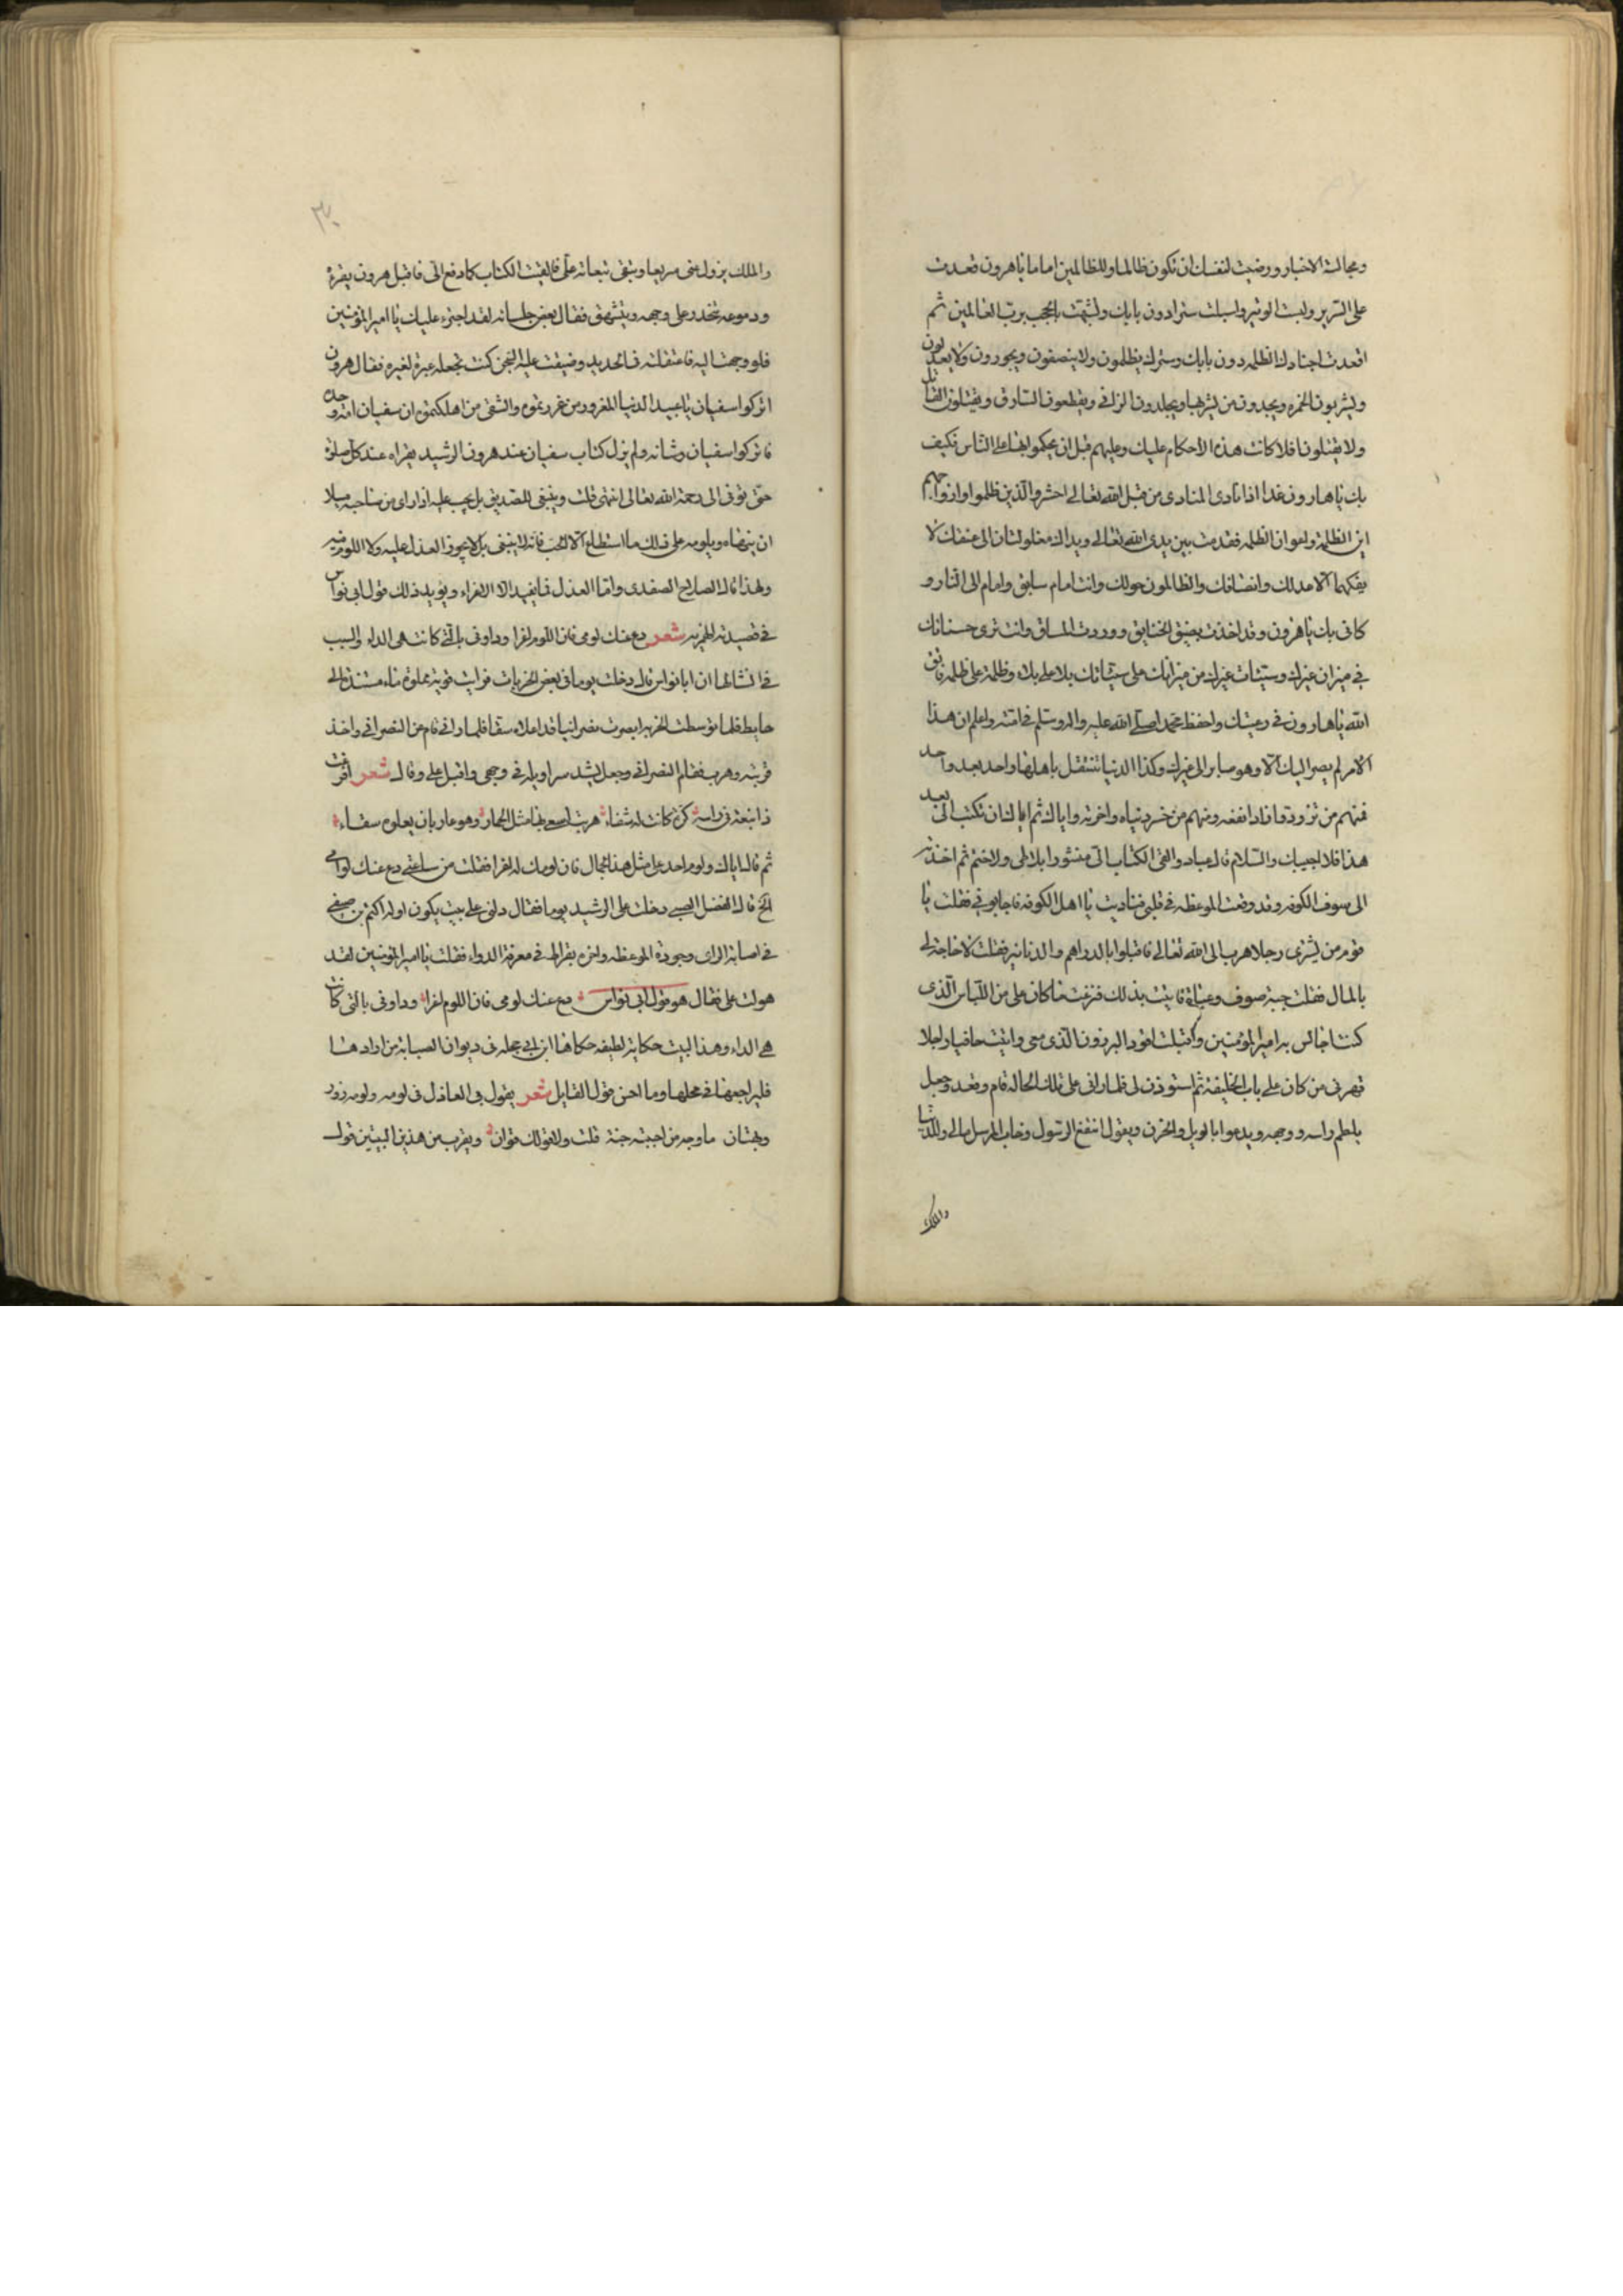 ومجالسة الاخيار ورضيت لنفسك ان تكون ظالما وللظالمين اماما ياهرون قعدت
على السرير ولبست الوثير واسبلت سترا دون بابك وتشبهت بالحجب برب العالمين ثم
اقعدت اجنادك الظلمه دون بابك وسترك يظلمون ولا ينصفون ويجورون ولا يعدلون
ويشربون الخمره ويحدون من يشربها ويجلدون الزانى ويقطعون السارق ويقتلون القاتل
ولا يقتلون افلا كانت هذه الاحكام عليك وعليهم قبل ان يحكمو بها على الناس فكيف
بك ياهارون غدا اذا نادى المنادى من قبل الله تعالى احشروا الذين ظلموا وازواجهم
اين الظلمة واعوان الظلمه فقدمت بين يدى الله تعالى ويداك مغلولتان الى عنقك لا
يفكهما الا عدلك وانصافك والظالمون حولك وانت امام سابق وامام الى النار و
كانى بك ياهرون وقد اخذت بضيق الخناق ووردت المساق وانت ترى حسناتك
فى ميزان غيرك وسيئات غيرك من ميزانك على سيئاتك بلا على بلاء وظلمة على ظلمه فاتق
الله ياهارون فى رعيتك واحفظ محمد اصلى الله عليه واله وسلم فى امته واعلم ان هذا
الامر لم يصر اليك الا وهو صاير الى غيرك وكذا الدنيا تنتقل باهلها واحد بعد واحد
فمنهم من تزود زادا نفعه ومنهم من خسر دنياه واخرته واياك ثم اياك ان تكتب الى بعد
هذا فلا اجيبك والسلام قال عباد والقى الكتاب الى منشورا بلا طى ولا ختم ثم اخذته
الى سوق الكوفه وقد وقعت الموعظه فى قلبى فناديت يا اهل الكوفه فاجابونى فقلت يا
قوم من يشترى رجلا هرب الى الله تعالى فاقبلوا بالدراهم والدنانير فقلت لا حاجة لى
بالمال فقلت جبة صوف وعباءة فاتيت بذلك فنزعت ما كان على من اللباس الذى
كنت اجالس به امير المؤمنين واقبلت اقود البرذون الذى معى واتيت حافيا راجلا
فهزئى من كان على باب الخليفة ثم استوذن لى فلما رانى على تلك الحاله قام وقعد وجعل
يلطم راسه ووجهه ويدعوا بالويل والحزن ويقول انتفع الرسول وخاب المرسل مالى وللدنيا
والملك
والملك يزول عنى سريعا وتبقى تبعاته على فالقيت الكتاب كما دفع الى فاقبل هرون يقرءه
ودموعه تتحدر على وجهه ويشهق فقال بعض جلسائه لقد اجترء عليك يا امير المؤمنين
فلو وجهت اليه فاعتقلته فى الحديد وضيقت عليه السجن كنت تجعله عبرة لغيره فقال هرون
اتركوا سفيان يا عبيد الدنيا المغرور من غررتموه والشقى من اهلكتموه ان سفيان امة وحده
فاتركوا سفيان وشانه ولم يزل كتاب سفيان عند هرون الرشيد يقراه عند كل صلوة
حتى توفى الى رحمة الله تعالى انتهى قلت وينبغى للصديق بل يجب عليه اذا راى من صاحبه ميلا
ان ينهاه ويلومه على ذلك ما استطاع الا الحب فانه لا ينبغى بل لا يجوز العذل عليه ولا اللوم فيه
ولهذا قال الصلاح الصفدى واما العذل فما يفيد الا الاغراء ويؤيد ذلك قول ابى نواس
فى قصيدته الهمزيه شعر دع عنك لومى فان اللوم اغرا وداونى بالتى كانت هى الداء والسبب
فى انشائها ان ابا نواس قال دخلت يوما فى بعض الخربات فرايت قربة مملوة ماء مستندة الى
حايط فلما توسطت الخربه ابصرت نصرانيا قد اعلاه سقا فلما رانى قام عن النصرانى واخذ
قربته وهرب فقام النصرانى وجعل يشد سراويله فى وجهى واقبل على وقال شعر
ثم قال اياك ولوم احد على مثل هذا الحال فان لومك له اغرا فقلت من ساعتى دع عنك لوامى
الخ قال الفضل الضبى دخلت على الرشيد يوما فقال دلنى على بيت يكون اوله اكثم بن صيفى
فى اصابة الراى وجودة الموعظه واخره بقراط فى معرفة الدواء فقلت يا امير المؤمنين لقد
هولت على فقال هو قول ابى نواس دع عنك لومى فان اللوم اغرا وداونى بالتى كانت
هى الداء وهذا البيت حكاية لطيفه حكاها ابن ابى حجله فى ديوان الصبابة من ارادها
فليراجعها فى محلها وما احسن قول القايل شعر يقول لى العاذل فى لومه ولومه زور
وبهتان ما وجه من احببته جنة قلت ولا قولك قران ويقرب من هذين البيتين قول